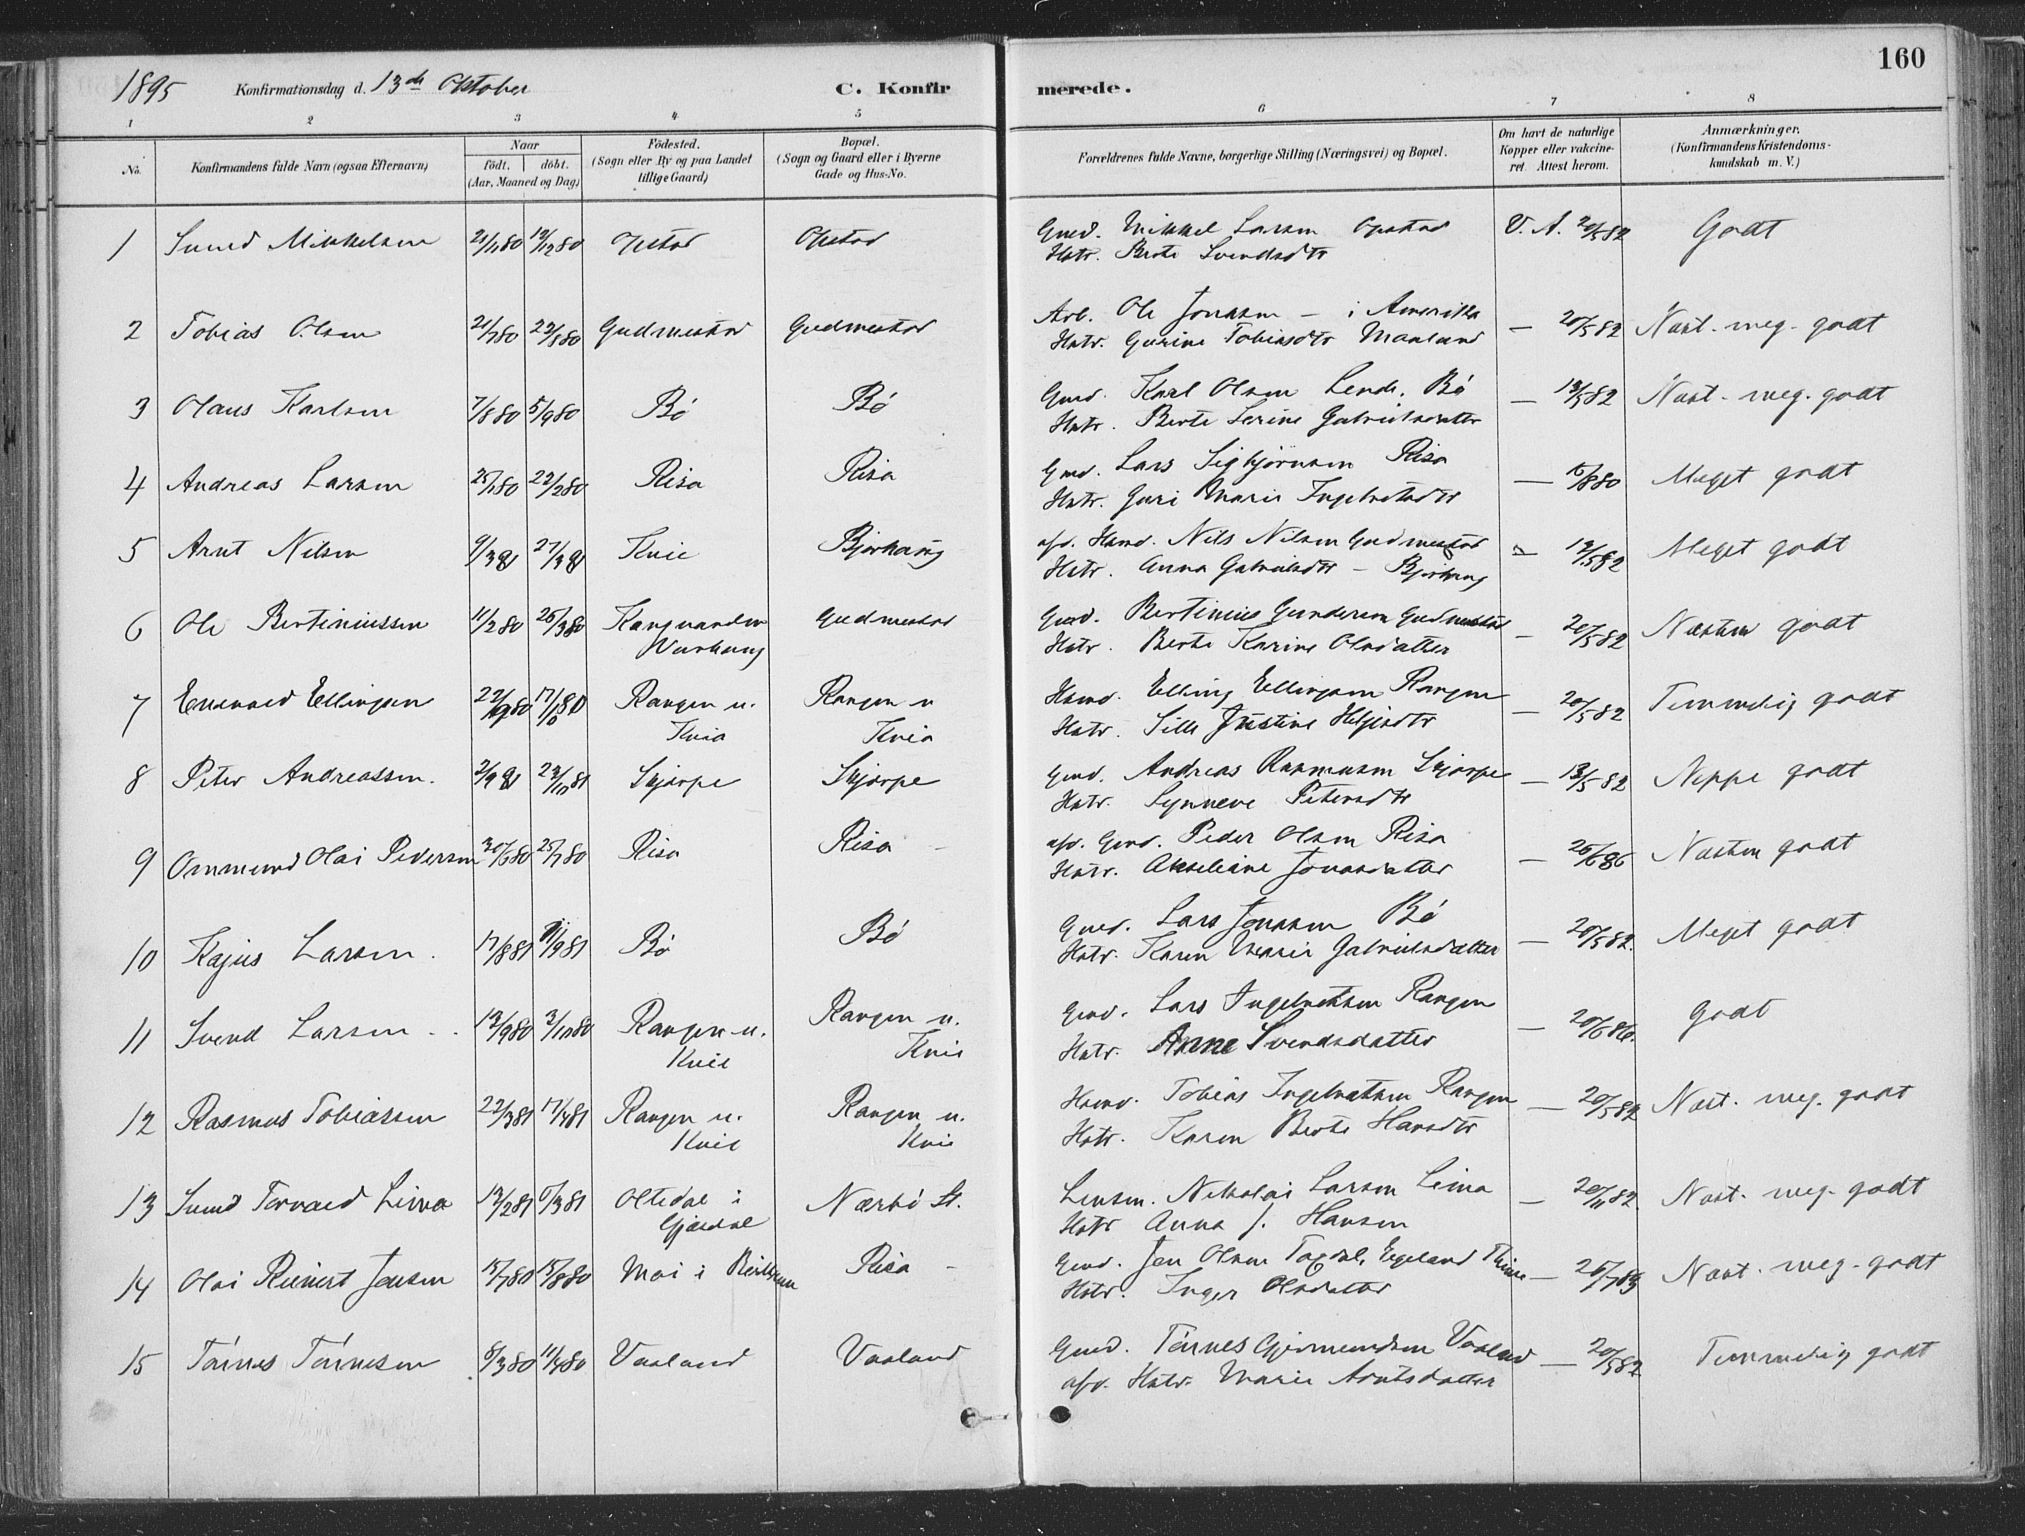 160
1895 Konfirmationsdag d. 13de Oktober C. Konfirmerede.
1 2 3 4 5 6 7 8
No. Konfirmandens fulde Navn (ogsaa Efternavn) Naar født. døbt. (Aar, Maaned og Dag) Fødested. (Sogn eller By og paa Landet tillige Gaard) Bopæl. (Sogn og Gaard eller i Byerne Gade og Hus-No. Forældrenes fulde Navne, borgerlige Stilling (Næringsvei) og Bopæl. Om havt de naturlige Kopper eller vakcineret. Attest herom. Anmærkninger. (Konfirmandens Kristendomskundskab m. V.)
1 Svend Mikkelsen 21/11 80 12/12 80 Opstad Opstad Gmd. Mikkel Larsen Opstad V. A. 20/5 82 Godt
Hstr. Berte Svendsdtr
2 Tobias Olsen 21/7 80 22/8 80 Gudmestad Gudmestad Arb. Ole Jonasen – i Amerika — 20/5 82 Næst. meg. godt
Hstr. Gurine Tobiasdtr Maaland
3 Olaus Karlsen 7/8 80 5/9 80 Bø Bø Gmd. Karl Olsen Lende, Bø — 13/5 82 Næst. meg. godt
Hstr. Berte Serine Gabrielsdatter
4 Andreas Larsen 25/1 80 22/2 80 Risa Risa Gmd. Lars Sigbjørnsen Risa — 15/8 80 Meget godt
Hstr. Guri Marie Ingebretsdtr
5 Arnt Nilsen 9/3 81 27/3 81 Kvie Bjørhaug afd. Hsmd. Nils Nilsen Gudmestad — 13/5 82 Meget godt
Hstr. Anna Gabrielsdtr – Bjørhaug
6 Ole Bertiniussen 11/2 80 26/3 80 Varhaug Gudmestad Gmd. Bertinius Gundersen Gudmestad — 20/5 82 Næsten godt
Hstr. Berte Karine Olsdatter
7 Enevald Ellingsen 22/9 80 17/10 80 Rangen u. Kvia Rangen u Kvia Hsmd. Elling Ellingsen Rangen — 20/5 82 Temmelig godt
Hstr. Sille Justine
8 Peter Andreassen. 2/9 81 23/10 81 Skjørpe Skjørpe Gmd. Andreas Rasmusen Skjørpe — 13/5 82 Neppe godt
Hstr. Synneve Petersdtr
9 Ommund Olai Pedersen 30/6 80 25/7 80 Risa Risa afd. Gmd. Peder Olsen Risa — 26/6 86 Næsten godt
Hstr. Akseliane Jonasdatter
10 Kajus Larsen. 17/8 81 11/9 81 Bø Bø Gmd. Lars Jonasen Bø — 20/5 82. Meget godt
Hstr. Karen Marie Gabrielsdatter
11 Svend Larsen 12/9 80 3/10 80 Rangen u. Kvie Rangen u. Kvie Gmd. Lars Ingebretsen Rangen — 20/6 86. Godt
Hstr. Anne Svendsdatter
12 Rasmus Tobiassen 22/3 81 17/4 81 Rangen u. Kvie Rangen u. Kvie Hsmd. Tobias Ingebretsen Rangen — 20/5 82 Næst. meg. godt
Hstr. Karen Berte Hansdtr
13 Svend Torvald Lima 12/2 81 6/3 81 Oltedal i Gjæsdal Nærbø St. Lensm. Nikolai Larsen Lima — 20/11 82. Næst. meg. godt
Hstr Anna J. Hansen
14 Olai Reinert Jensen 15/7 80 15/8 80 Moi i Risa Gmd. Jen Olsen Egeland — 26/7 83 Næst. meg. godt
Hstr. Inger Olsdatter
15 Tønnes Tønnesen 6/3 80 11/4 80 Vaaland Vaaland Gmd. Tønnes Gjermundsen Vaaland — 20/5 82 Temmelig godt
afd. Hstr. Marie Arntsdatter